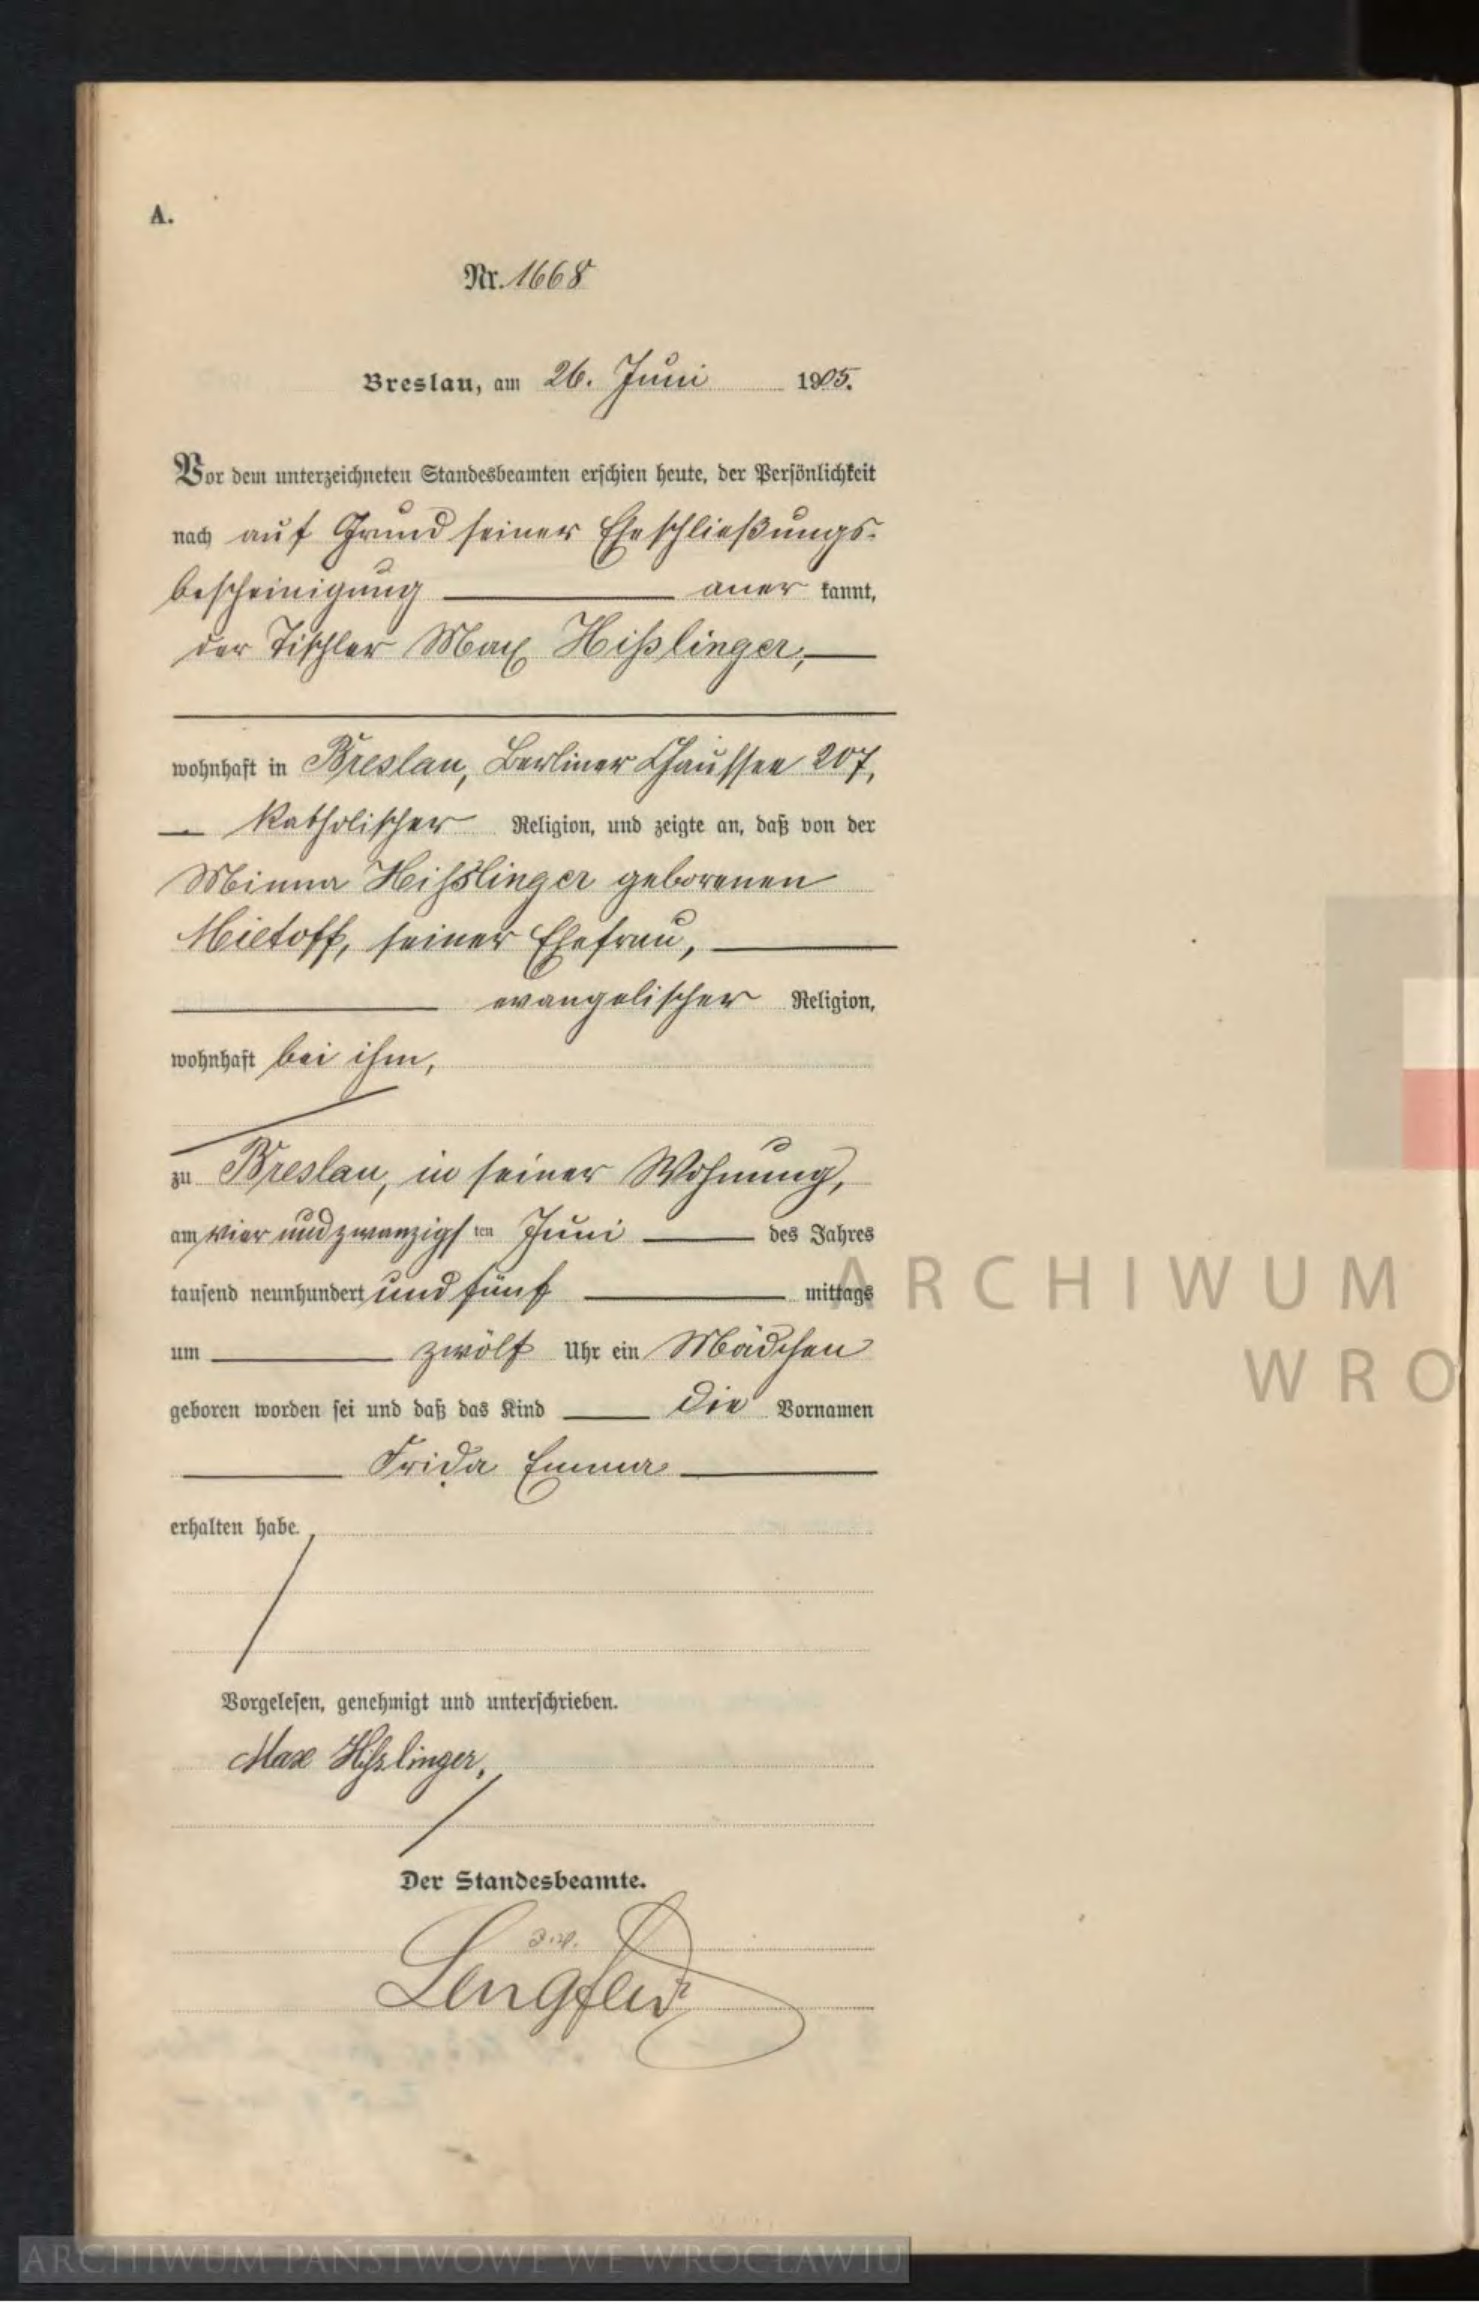 A.
Nr. 1668
Breslau, am 26. Juni 1905.
Vor dem unterzeichneten Standesbeamten erschien heute, der Persönlichkeit
nach auf Grund seiner Eheschließungs-
bescheinigung aner kannt,
der Tischler Max Hißlinger,
wohnhaft in Breslau, Berliner Chaussee 207,
katholischer Religion, und zeigte an, daß von der
Minna Hißlinger geborenen
Mietoff, seiner Ehefrau,
evangelischer Religion,
wohnhaft bei ihm,
zu Breslau, in seiner Wohnung,
am vier und zwanzigsten Juni des Jahres
tausend neunhundert und fünf mittags
um zwölf Uhr ein Mädchen
geboren worden sei und daß das Kind die Vornamen
Frida Emma
erhalten habe.
Vorgelesen, genehmigt und unterschrieben.
Max Hißlinger,
Der Standesbeamte.
Lengfeld
ARCHIWUM
WRO
ARCHIWUM PAŃSTWOWE WE WROCŁAWIU